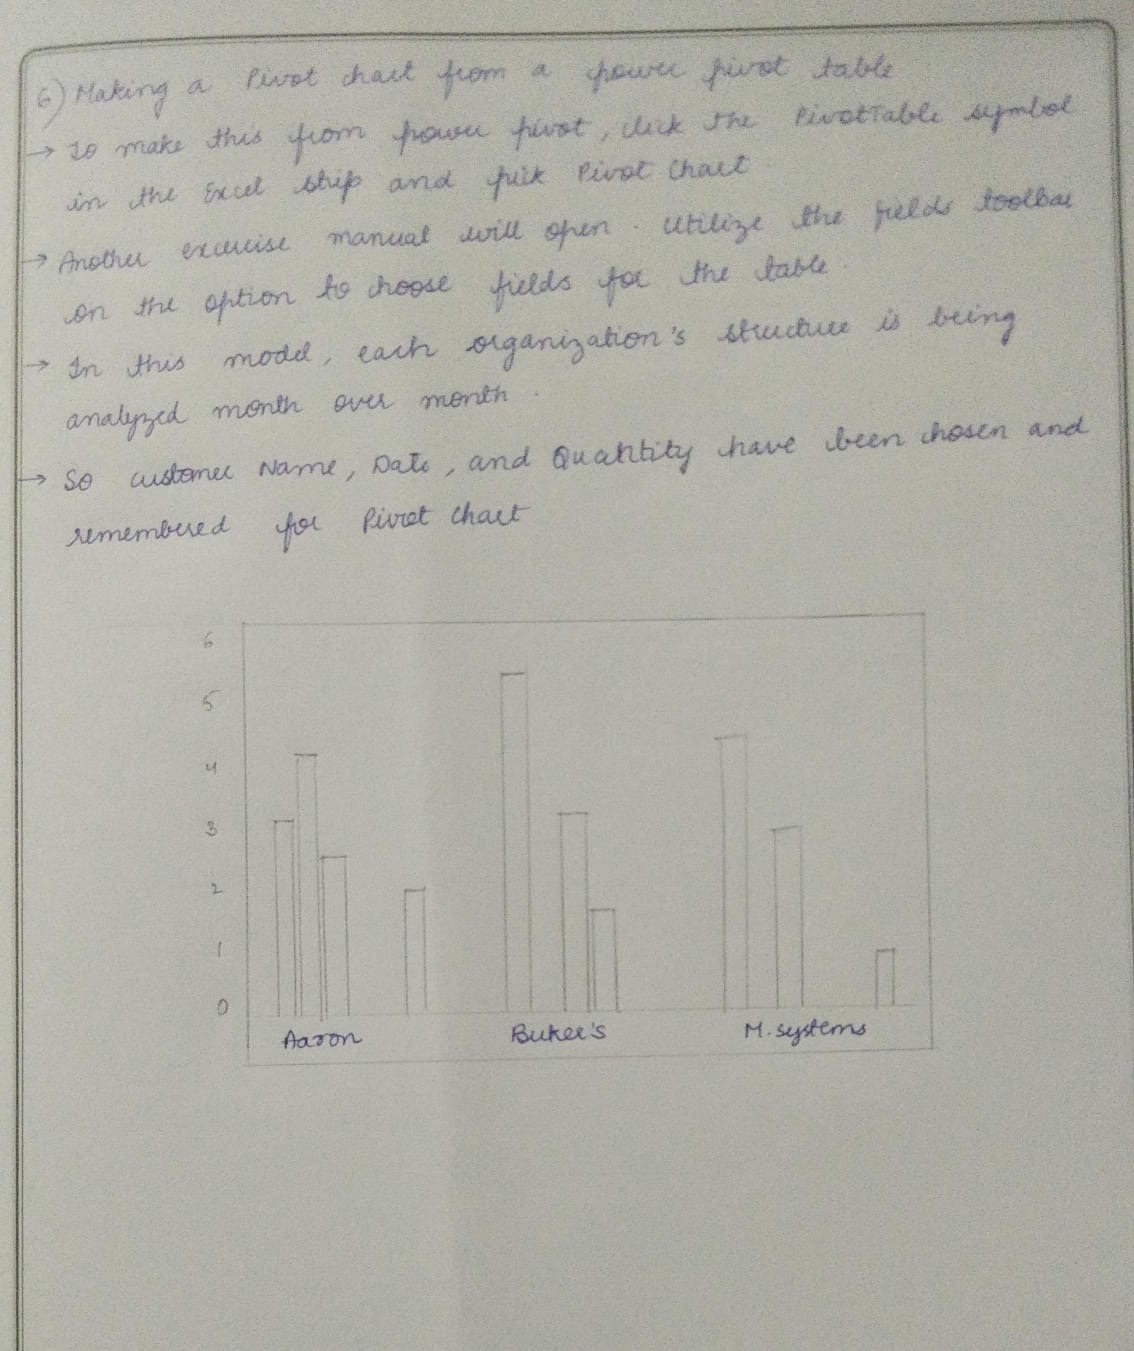 6) Making a Pivot chart from a power pivot table
→ To make this from power pivot, click the PivotTable symbol
in the Excel strip and pick Pivot Chart
→ Another exercise manual will open. Utilize the fields toolbar
on the option to choose fields for the table.
→ In this model, each organization's structure is being
analyzed month over month.
→ So customer Name, Date, and Quantity have been chosen and
remembered for Pivot Chart
6
5
4
3
2
1
0
Aaron Buker's M.systems